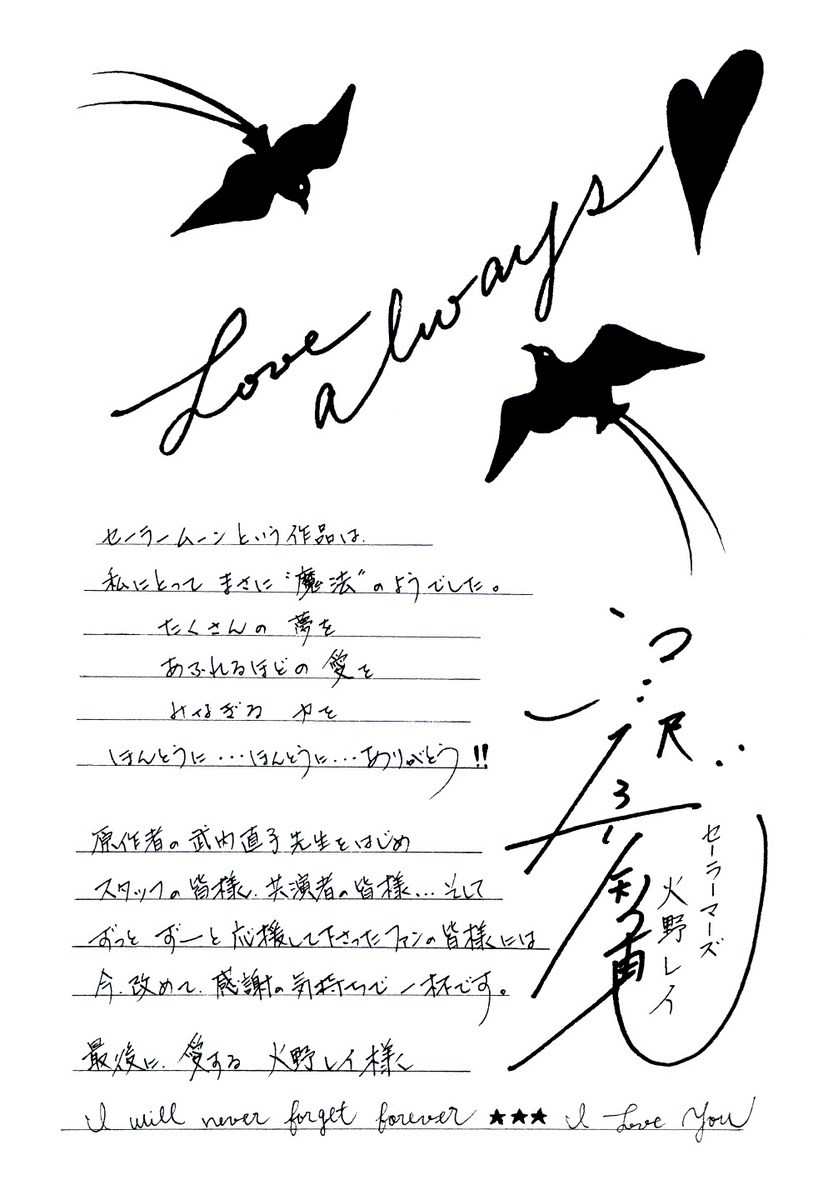 Love
always
セーラームーンという作品は、
私にとって まさに“魔法”のようでした。
たくさんの 夢を
あふれるほどの 愛を
みなぎる 力を
ほんとうに…ほんとうに…ありがとう!!
原作者の 武内直子先生をはじめ
スタッフの皆様、共演者の皆様…そして
ずっと ずーっと 応援して下さったファンの皆様には
今、改めて、感謝の気持ちで一杯です。
最後に、愛する 火野レイ様へ
I will never forget forever ★★★ I Love You
セーラーマーズ
火野レイ